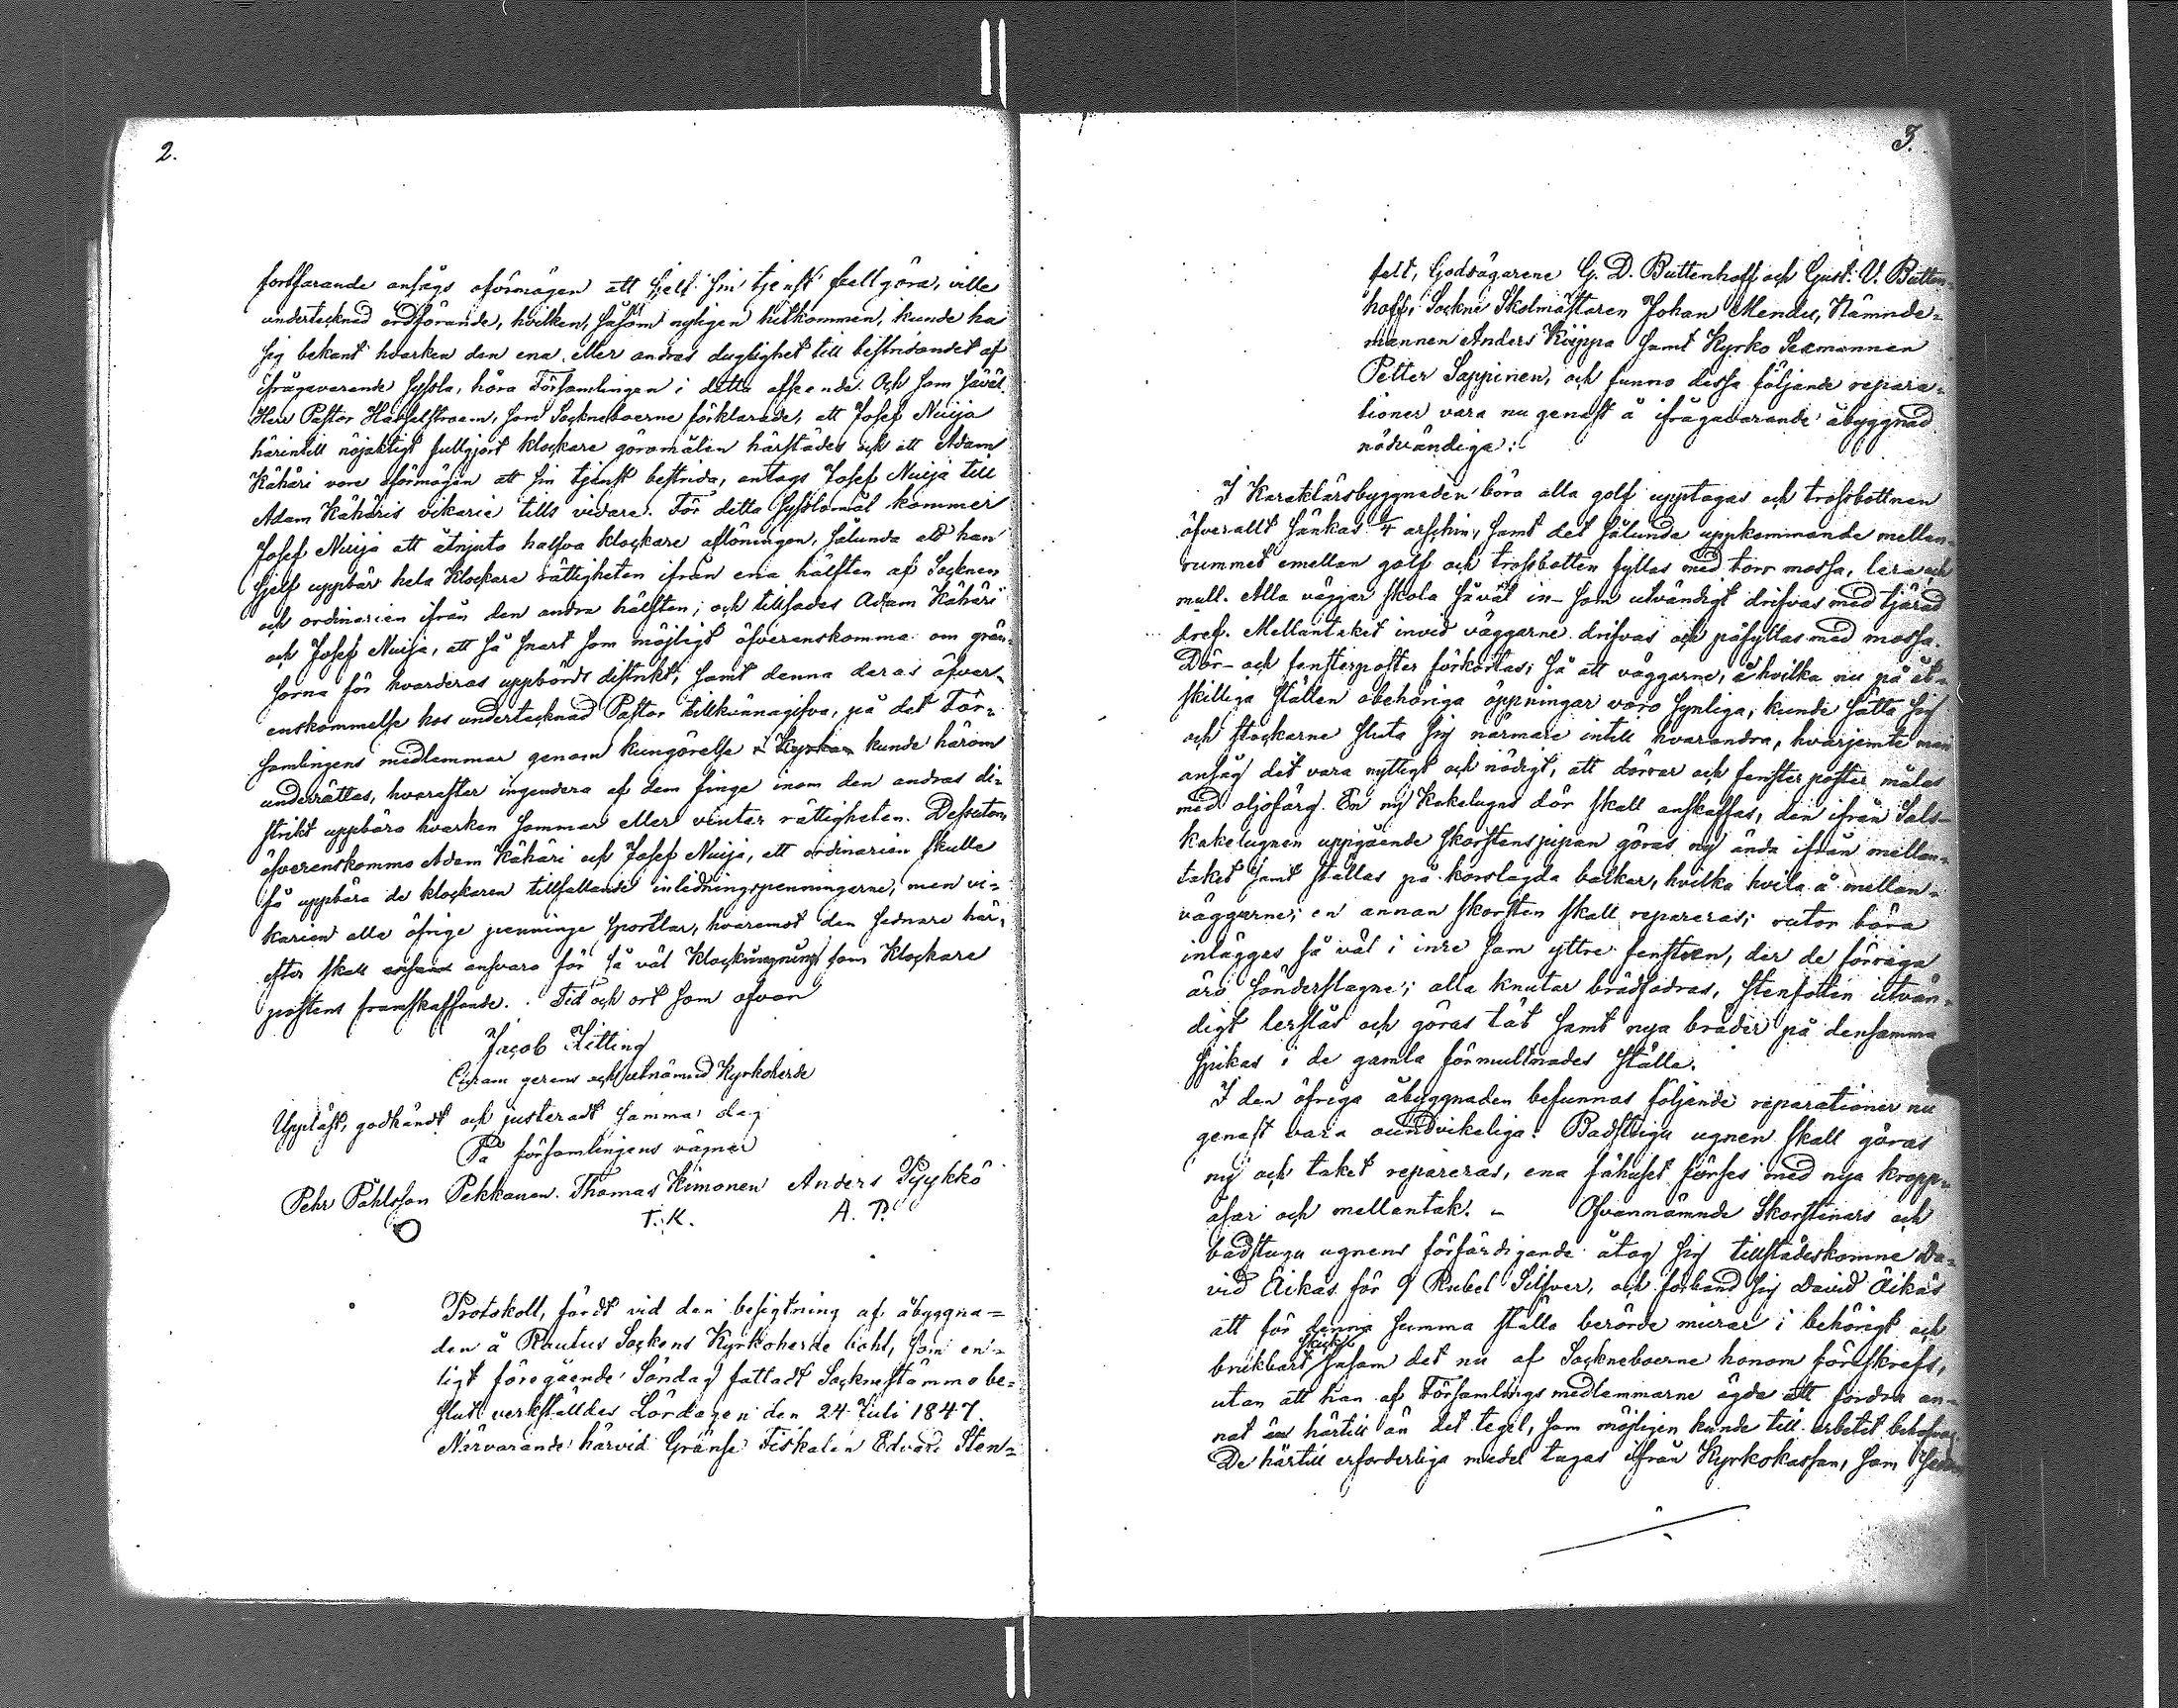 2.
fortfarande ansågs oförmögen att sjelf sin tjenst fullgöra, ville
undertecknad ordförande, hvilken, såsom nyligen hitkommen, kunde ha
sig bekant hvarken den ena eller andras duglighet till bestridandet af
ifrågavarande syssla, höra Församlingen i detta afseende. Och som såväl
Herr Pastor Hasselstroem, som Sockneboerne förklarade, att Josef Nuija
härintill nöjaktigt fullgjort klockare göromålen härstädes och att Adam
Kähäri vore oförmögen att sin tjenst bestrida, antogs Josef Nuija till
Adam Kähäris vikarie tills vidare. För detta sysslomål kommer
Josef Nuija att åtnjuta halfva klockare aflöningen, sålunda att han
sjelf uppbär hela Klockare rättigheten ifrån ena hälften af Socknen
och ordinarien ifrån den andra hälften; och tillsades Adam Kähäri
och Josef Nuija, att så snart som möjligt öfverenskomma om grän-
sorna för hvarderas uppbörds distrikt, samt denna deras öfver-
enskommelse hos undertecknad Pastor tillkännagifva, på det För-
samlingens medlemmar genom kungörelse i Kyrkan kunde härom
underrättas, hvarefter ingendera af dem finge inom den andras di-
strikt uppbära hvarken sommar eller vinter rättigheten. Dessutom
öfverenskommo Adam Kähäri och Josef Nuija, att ordinarien skulle
få uppbära de klockaren tillfallande inledningspenningarne, men vi-
karien alla öfrige penninge sportlar, hvaremot den sednare här-
efter skall ansvara för så väl Klockringning som Klockare
postens framskaffande. Tid och ort som ofvan
Jacob Kitting
Curam gerens och utnämnd Kyrkoherde
Uppläst, godkändt och justeradt samma dag
På församlingens vägnar
Pehr Påhlsson Pekkanen. Thomas Kimonen Anders Pyykkö
T. K. A. P.
Protokoll, fördt vid den besigtning af åbyggna-
den å Rautus Sockens Kyrkoherde bohl, som en-
ligt föregående Söndag fattadt Sockenstämmo be-
slut verkställdes Lördagen den 24 Juli 1847.
Närvarande härvid Gränse Fiskalen Edvard Sten-
3.
felt, Godsägarene G. D. Buttenhoff och Gust. V. Butten-
hoff, Sockne Skolmästaren Johan Mendu, Nämnde-
mannen Anders Kuippa samt Kyrko Sexmannen
Petter Sappinen, och funno dessa följande repara-
tioner vara nu genast å ifrågavarande åbyggnad
nödvändiga:
I Karaktärsbyggnaden böra alla golf upptagas och trossbottnen
öfverallt sänkas ¼ arschin, samt det sålunda uppkommande mellan-
rummet emellan golf och trossbotten fyllas med torr mossa, lera och
mull. Alla väggar skola såväl in- som utvändigt drifvas med tjärad
dref. Mellantaket invid väggarne drifvas och påfyllas med mossa.
Dör- och fensterposter förkortas, så att väggarne, å hvilka nu på åt-
skilliga ställen obehöriga öppningar voro synliga, kunde sätta sig
och stockarne sluta sig närmare intill hvarandra, hvarjemte man
ansåg det vara nyttigt och nödigt, att dörrar och fensterposter målas
med oljofärg. En ny Kakelugns dör skall anskaffas, den ifrån Sals-
kakelugnen uppgående skorstenspipan göras ny ända ifrån mellan-
taket samt ställas på korslagda balkar, hvilka hvila å mellan-
väggarne; en annan skorsten skall repareras; rutor böra
inläggas så väl i inre som yttre fenstren, der de förriga
äro sönderslagne; alla knutar brädfodras, stenfoten utvän-
digt lerslås och göras tät samt nya bräder på densamma
spikas i de gamla förmultnades ställe.
I den öfriga åbyggnaden befunnos följande reparationer nu
genast vara oundvikeliga: Badstugu ugnen skall göras
ny och taket repareras, ena fähuset förses med nya kropp-
åsar och mellantak. - Ofvannämnde Skorstenars och
badstugu ugnens förfärdigande åtog sig tillstädeskomne Da-
vid Äikäs för 9 Rubel Silfver, och förband sig David Äikäs
att för denna summa ställa berörde murar i behörigt och
brukbart skick såsom det nu af Sockneboerne honom föreskrefs,
utan att han af Församlings medlemmarne ägde att fordra an-
nat härtill än det tegel, som möjligen kunde till arbetet behöfvas.
De härtill erforderliga medel tagas ifrån Kyrkokassan, som